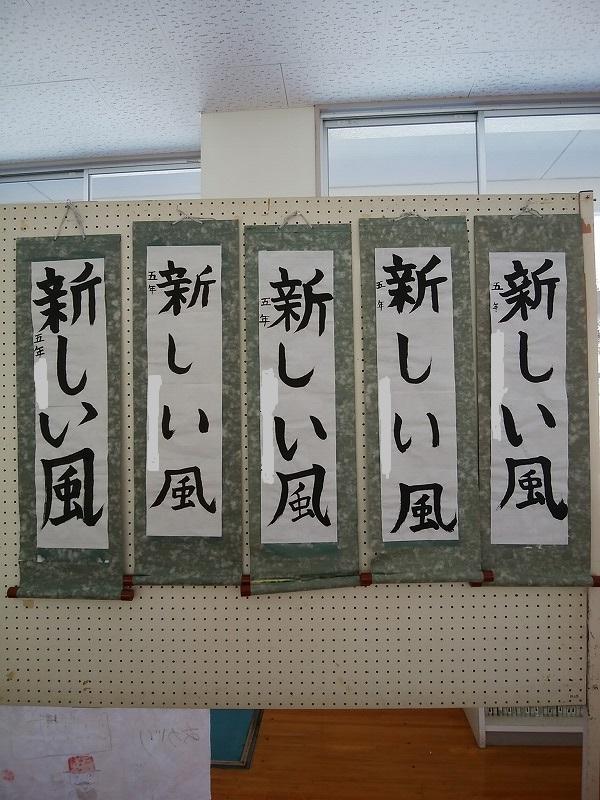 新しい風
五年
新しい風
五年
新しい風
五年
新しい風
五年
新しい風
五年